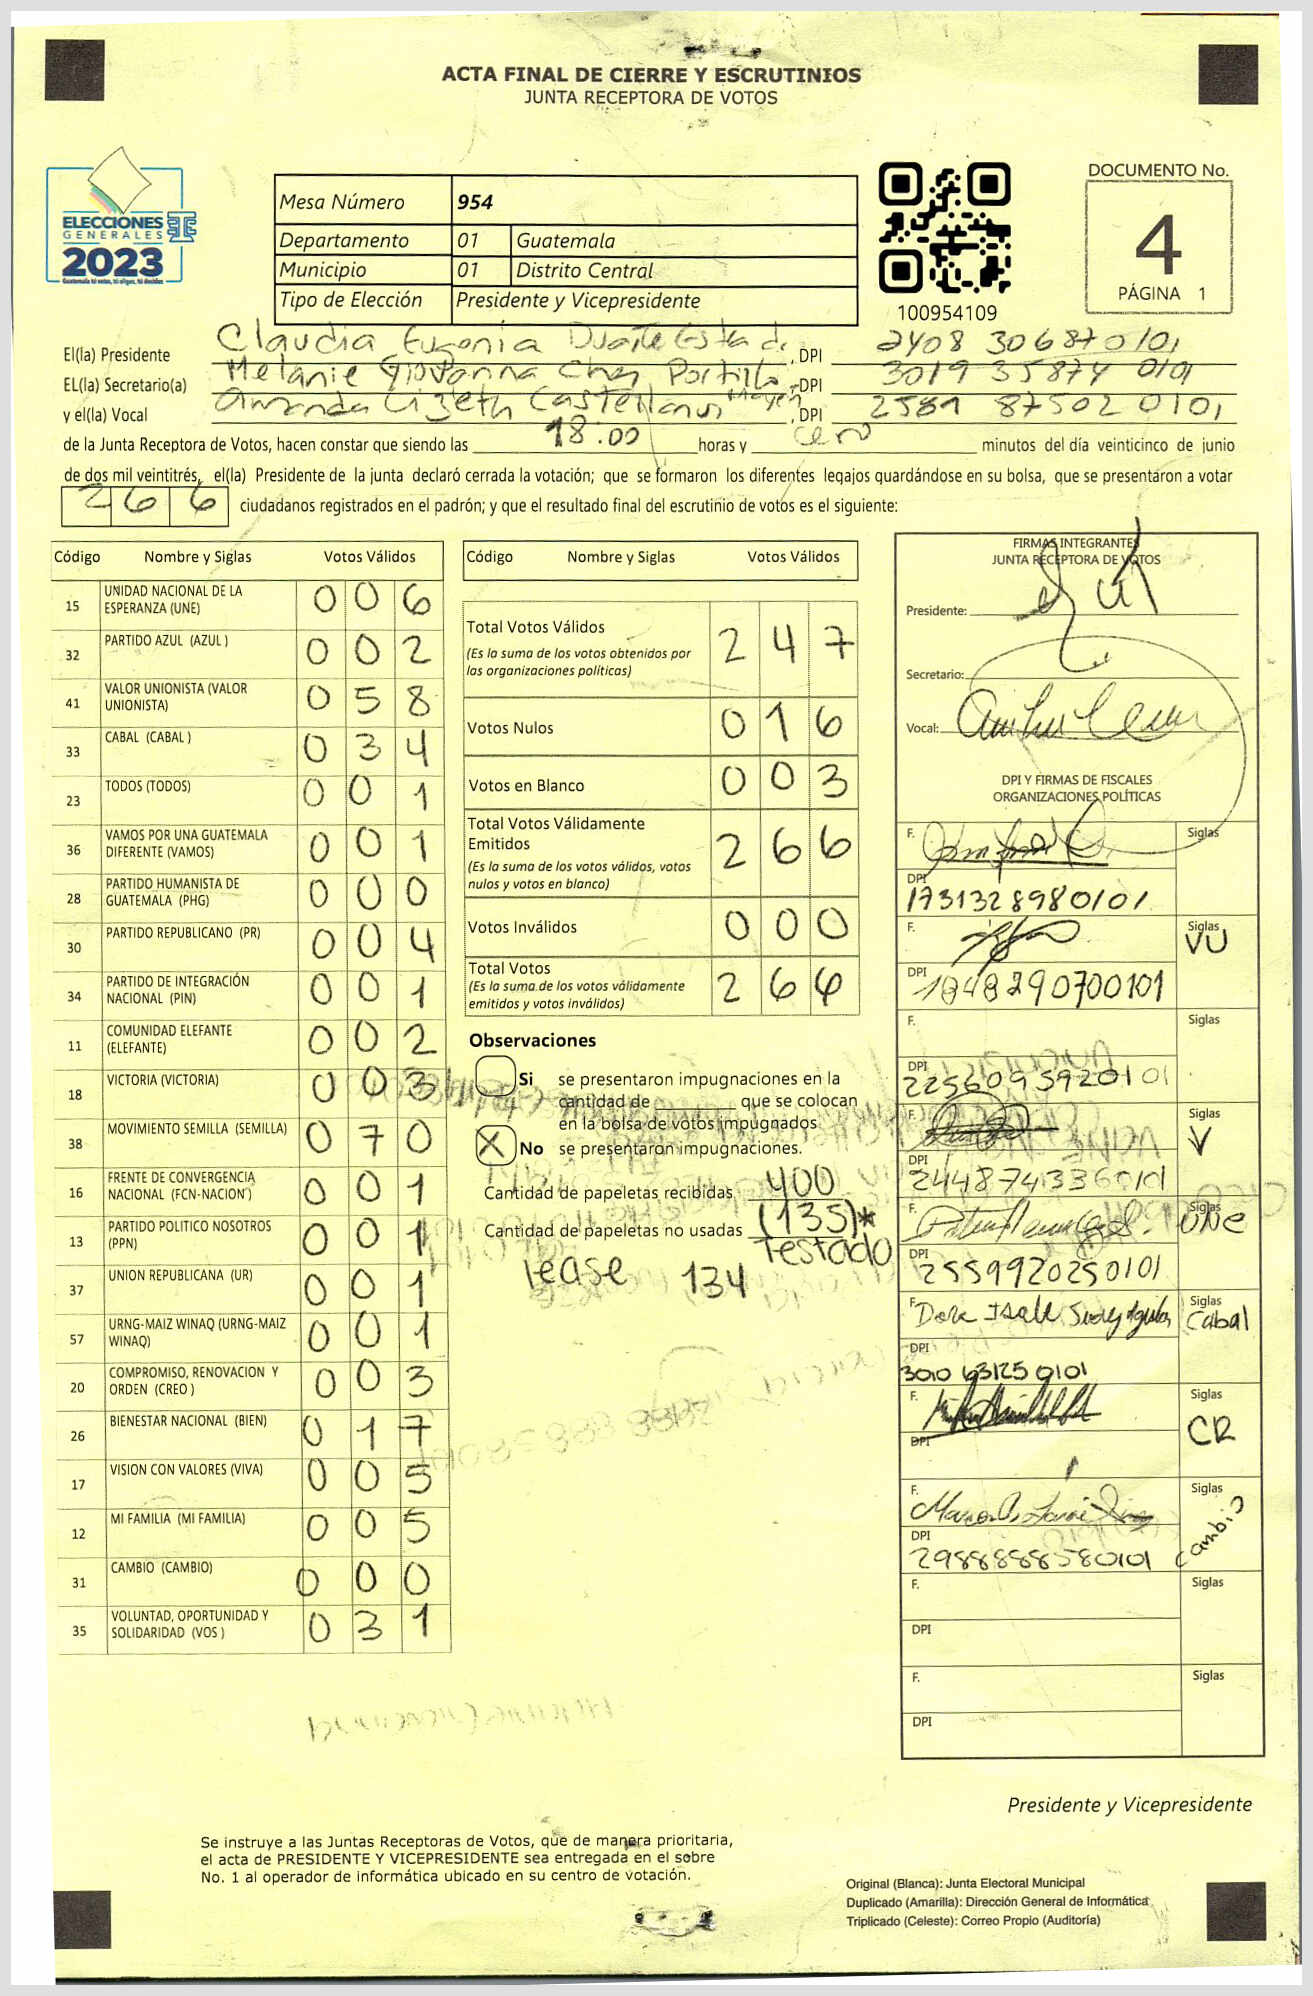 ACTA FINAL DE CIERRE Y ESCRUTINIOS
JUNTA RECEPTORA DE VOTOS
ELECCIONES
GENERALES
2023
Guatemala tú votas, tú eliges, tú decides
Mesa Número 954
Departamento 01 Guatemala
Municipio 01 Distrito Central
Tipo de Elección Presidente y Vicepresidente
100954109
DOCUMENTO No.
4
PÁGINA 1
El(la) Presidente Claudia Eugenia Duarte , DPI 2408 30687 0101
EL(la) Secretario(a) Melanie Giovanna Portillo , DPI 3019 35874 0101
y el(la) Vocal Amanda Lizeth Castellanos , DPI 2581 87502 0101
de la Junta Receptora de Votos, hacen constar que siendo las 18:00 horas y cero minutos del día veinticinco de junio
de dos mil veintitrés, el(la) Presidente de la junta declaró cerrada la votación; que se formaron los diferentes legajos guardándose en su bolsa, que se presentaron a votar
266 ciudadanos registrados en el padrón; y que el resultado final del escrutinio de votos es el siguiente:
Código Nombre y Siglas Votos Válidos
15 UNIDAD NACIONAL DE LA ESPERANZA (UNE) 006
32 PARTIDO AZUL (AZUL ) 002
41 VALOR UNIONISTA (VALOR UNIONISTA) 058
33 CABAL (CABAL ) 034
23 TODOS (TODOS) 001
36 VAMOS POR UNA GUATEMALA DIFERENTE (VAMOS) 001
28 PARTIDO HUMANISTA DE GUATEMALA (PHG) 000
30 PARTIDO REPUBLICANO (PR) 004
34 PARTIDO DE INTEGRACIÓN NACIONAL (PIN) 001
11 COMUNIDAD ELEFANTE (ELEFANTE) 002
18 VICTORIA (VICTORIA) 003
38 MOVIMIENTO SEMILLA (SEMILLA) 070
16 FRENTE DE CONVERGENCIA NACIONAL (FCN-NACION) 001
13 PARTIDO POLITICO NOSOTROS (PPN) 001
37 UNION REPUBLICANA (UR) 001
57 URNG-MAIZ WINAQ (URNG-MAIZ WINAQ) 001
20 COMPROMISO, RENOVACION Y ORDEN (CREO ) 003
26 BIENESTAR NACIONAL (BIEN) 017
17 VISION CON VALORES (VIVA) 005
12 MI FAMILIA (MI FAMILIA) 005
31 CAMBIO (CAMBIO) 000
35 VOLUNTAD, OPORTUNIDAD Y SOLIDARIDAD (VOS ) 031
Código Nombre y Siglas Votos Válidos
Total Votos Válidos 247
(Es la suma de los votos obtenidos por
las organizaciones políticas)
Votos Nulos 016
Votos en Blanco 003
Total Votos Válidamente
Emitidos 266
(Es la suma de los votos válidos, votos
nulos y votos en blanco)
Votos Inválidos 000
Total Votos 266
(Es la suma de los votos válidamente
emitidos y votos inválidos)
Observaciones
Si se presentaron impugnaciones en la
cantidad de ______ que se colocan
en la bolsa de votos impugnados
X No se presentaron impugnaciones.
Cantidad de papeletas recibidas 400
Cantidad de papeletas no usadas (135)*
Testado
lease 134
FIRMAS INTEGRANTES
JUNTA RECEPTORA DE VOTOS
Presidente:
Secretario:
Vocal:
DPI Y FIRMAS DE FISCALES
ORGANIZACIONES POLÍTICAS
F. Siglas
DPI 1731328980101
F. Siglas VU
DPI 1848290700101
F. Siglas
DPI 2256095920101
F. Siglas V
DPI 24487413360101
F. Siglas UNE
DPI 2559920250101
F. Dora Siglas Cabal
DPI 3010 63125 0101
F. Siglas CR
DPI
F. Siglas Cambio
DPI 2988888580101
F. Siglas
DPI
F. Siglas
DPI
Presidente y Vicepresidente
Se instruye a las Juntas Receptoras de Votos, que de manera prioritaria,
el acta de PRESIDENTE Y VICEPRESIDENTE sea entregada en el sobre
No. 1 al operador de informática ubicado en su centro de votación.
Original (Blanca): Junta Electoral Municipal
Duplicado (Amarilla): Dirección General de Informática
Triplicado (Celeste): Correo Propio (Auditoría)